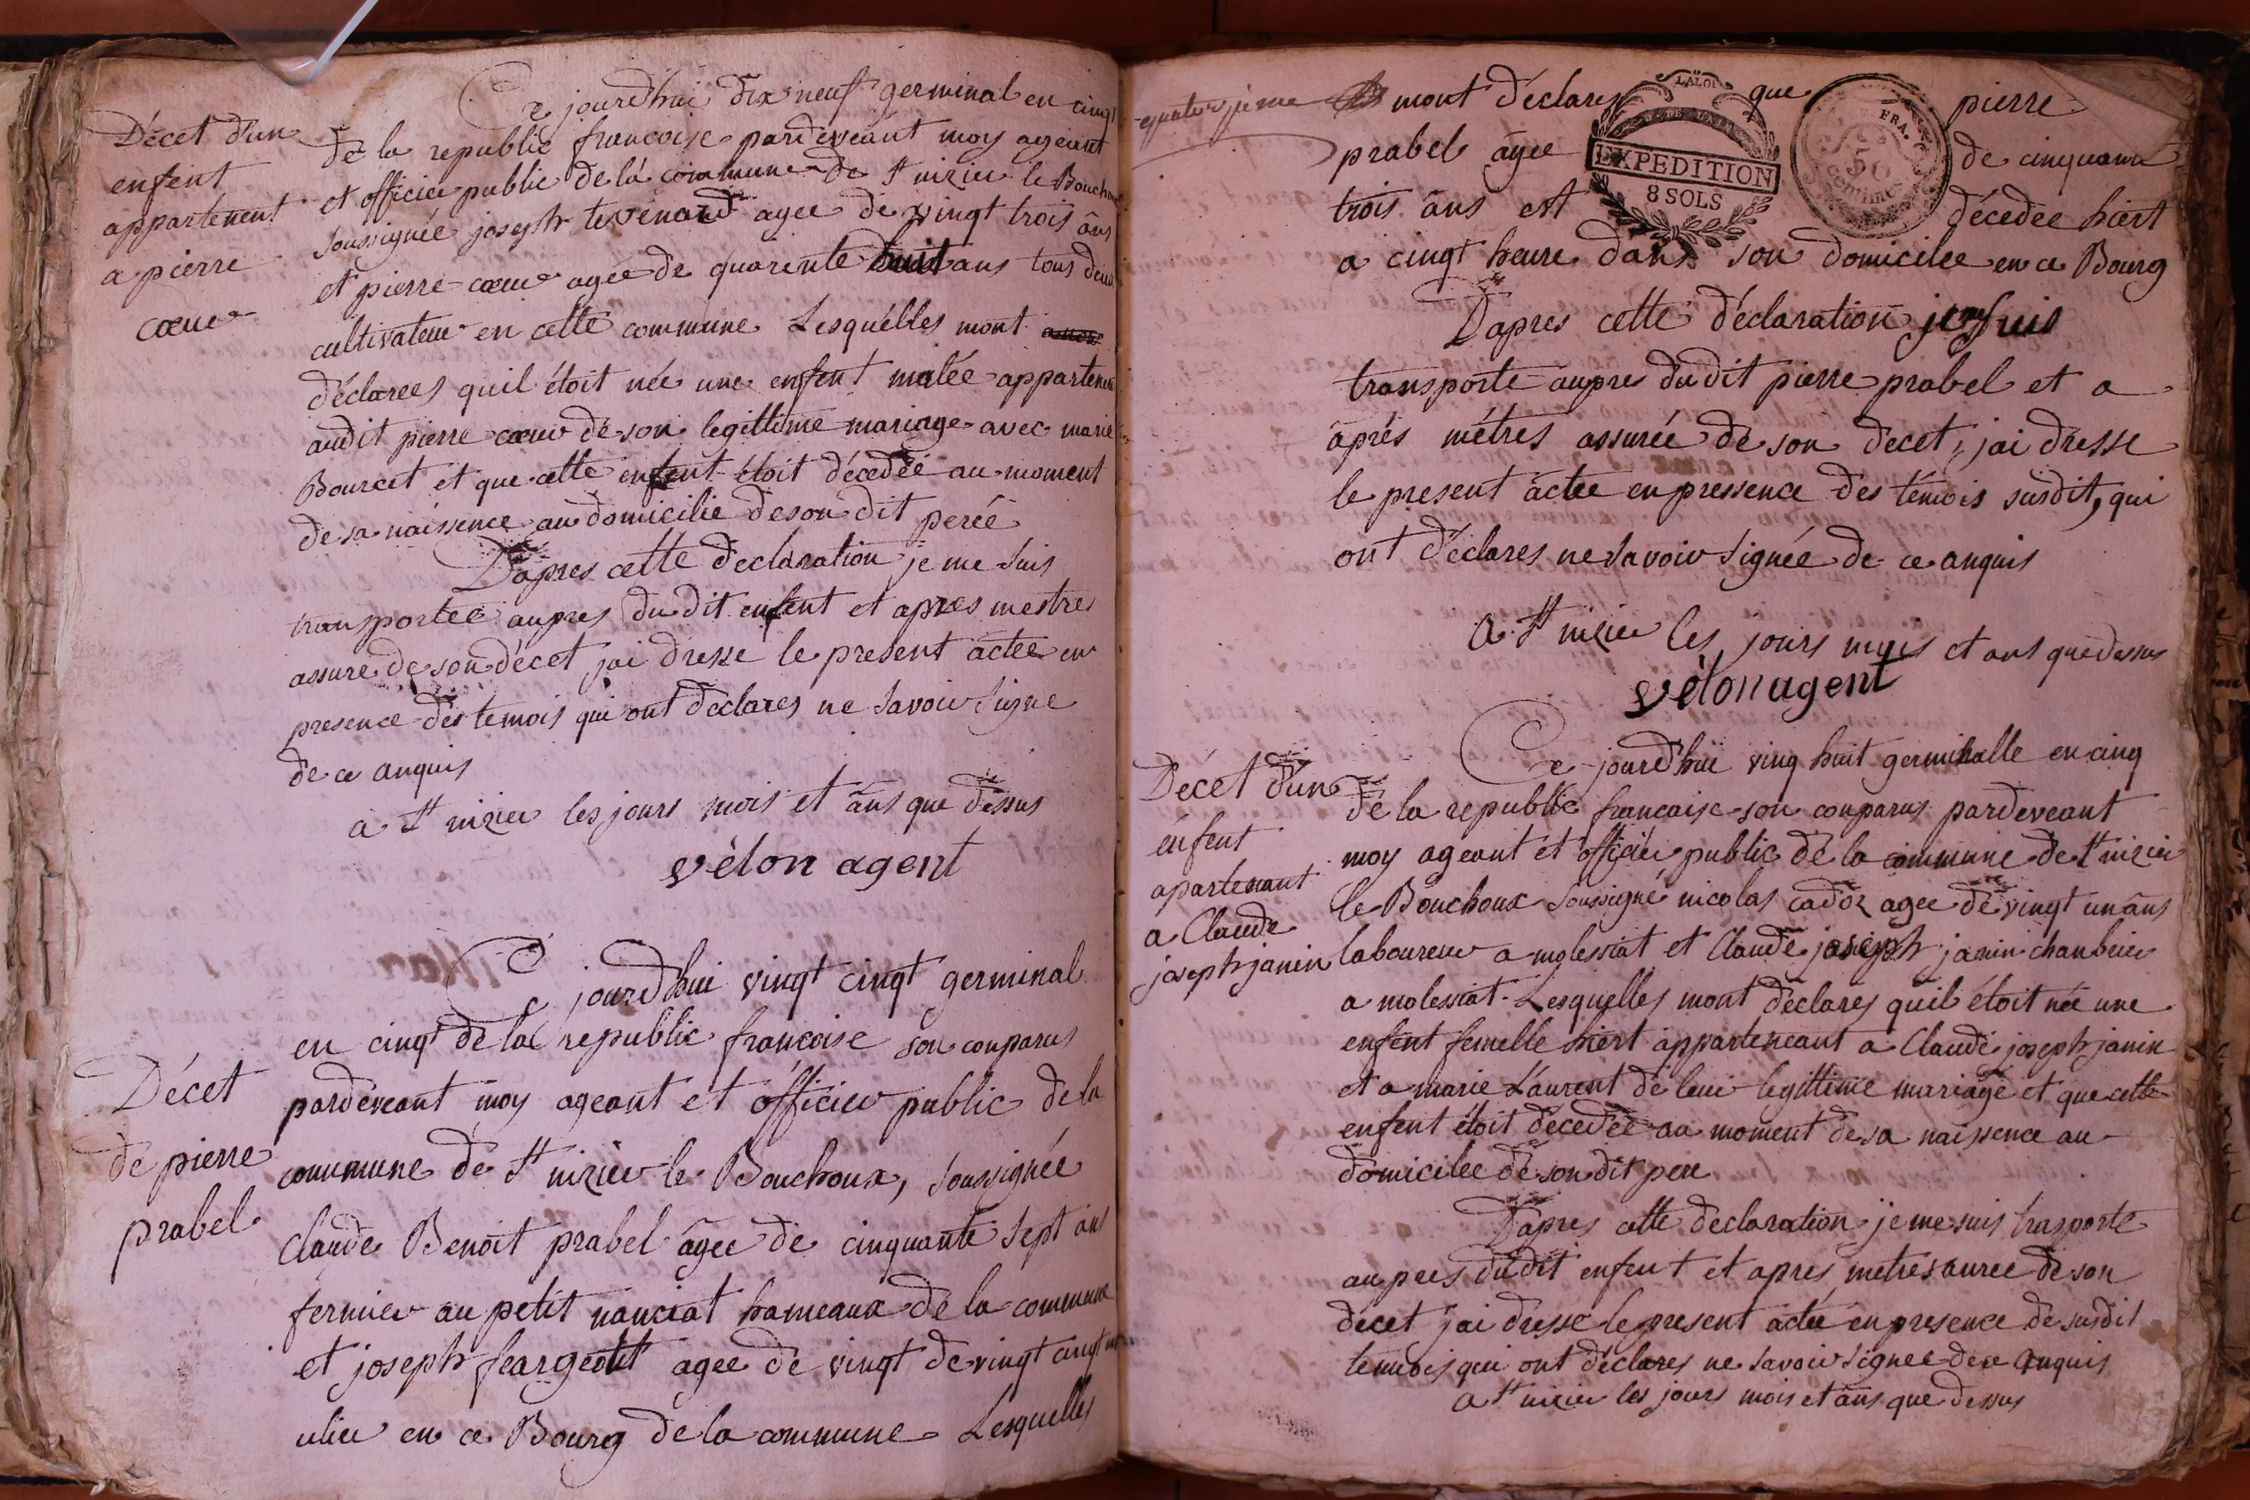 Décet d'un
enfent
appartenent
a pierre
cœur
Ce jourd'hui dix neuf germinal en cinqt
de la republic francoise pardeveant moy ageant
et officier public de la commune de St nizier le Bouchoux
soussignée joseph tevenard agee de vingt trois âns
et pierre cœur agée de quarente huit ans tous deux
cultivateur en cette commune Lesquélles mont
déclarees quil étoit née une enfent malée appartenen
audit pierre cœur de son legittime mariage avec marie
Bourcet et que cette enfent étoit décedée au moment
de sa naissence au domicilie de son dit perée
Dapres cette declaration je me suis
transportée aupres du dit enfent et apres mestres
assure de son décet jai dresse le present actée en
presence des temois qui ont declares ne savoir signe
de ce anquis
a St nizier les jours mois et âns que dessus
vélon agent
Décet
de pierre
prabel
Ce jourd'hui vingt cinqt germinal
en cinqt de la republic francoise son conparus
pardeveant moy ageant et officier public de la
commune de St nizier le Bouchoux, soussignée
Claude Benoit prabel âgee de cinquante sept ans
fermier au petit nanciat hameaux de la commune
et joseph feargeott agee de vingt de vingt cinqt
en ce Bourg de la commune Lesquelles
mont déclares que pierre
prabel âgee de cinquante
trois âns est décedée hiert
a cinqt heure dans son domicilee en ce Bourg
LALOI
EXPEDITION
8 SOLS
FRA.
50
centimes
Dapres cette déclaration je me suis
transporte aupres du dit pierre prabel et a
âprés métres assurée de son decet, jai dresse
le present actee en pressence des témois susdit, qui
ont déclares ne savoir signée de ce anquis
a St nizier les jours mois et ans que dessus
vélon agent
Décet d'un
enfent
apartenant
a Claude
joseph janin
Ce jourd'hui ving huit germinalle en cinq
de la republic francaise son conparus pardeveant
moy ageant et officiér public de la commune de St nizier
le Bouchoux soussigné nicolas cadoz agee de vingt un âns
laboureur a molessiat et Claude joseph janin chanbrier
a molessiat Lesquelles mont déclares quil étoit née une
enfent femelle hiert apparteneant a Claude joseph janin
et a marie Laurent de leur legittime mariage et que cette
enfent étoit décedée au moment de sa naissence au
domicilee de son dit pere
Dapres cette declaration je me suis trasporte
au pres du dit enfent et apres metres auree de son
decet jai dresse le present actée en presence de susdit
temois qui ont déclares ne savoir signee de ce anquis
a St nizier les jours mois et âns que dessus